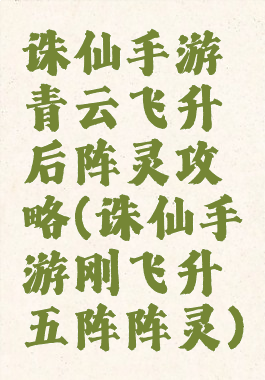 诛仙手游
青云飞升
后阵灵攻
略(诛仙手
游刚飞升
五阵阵灵)